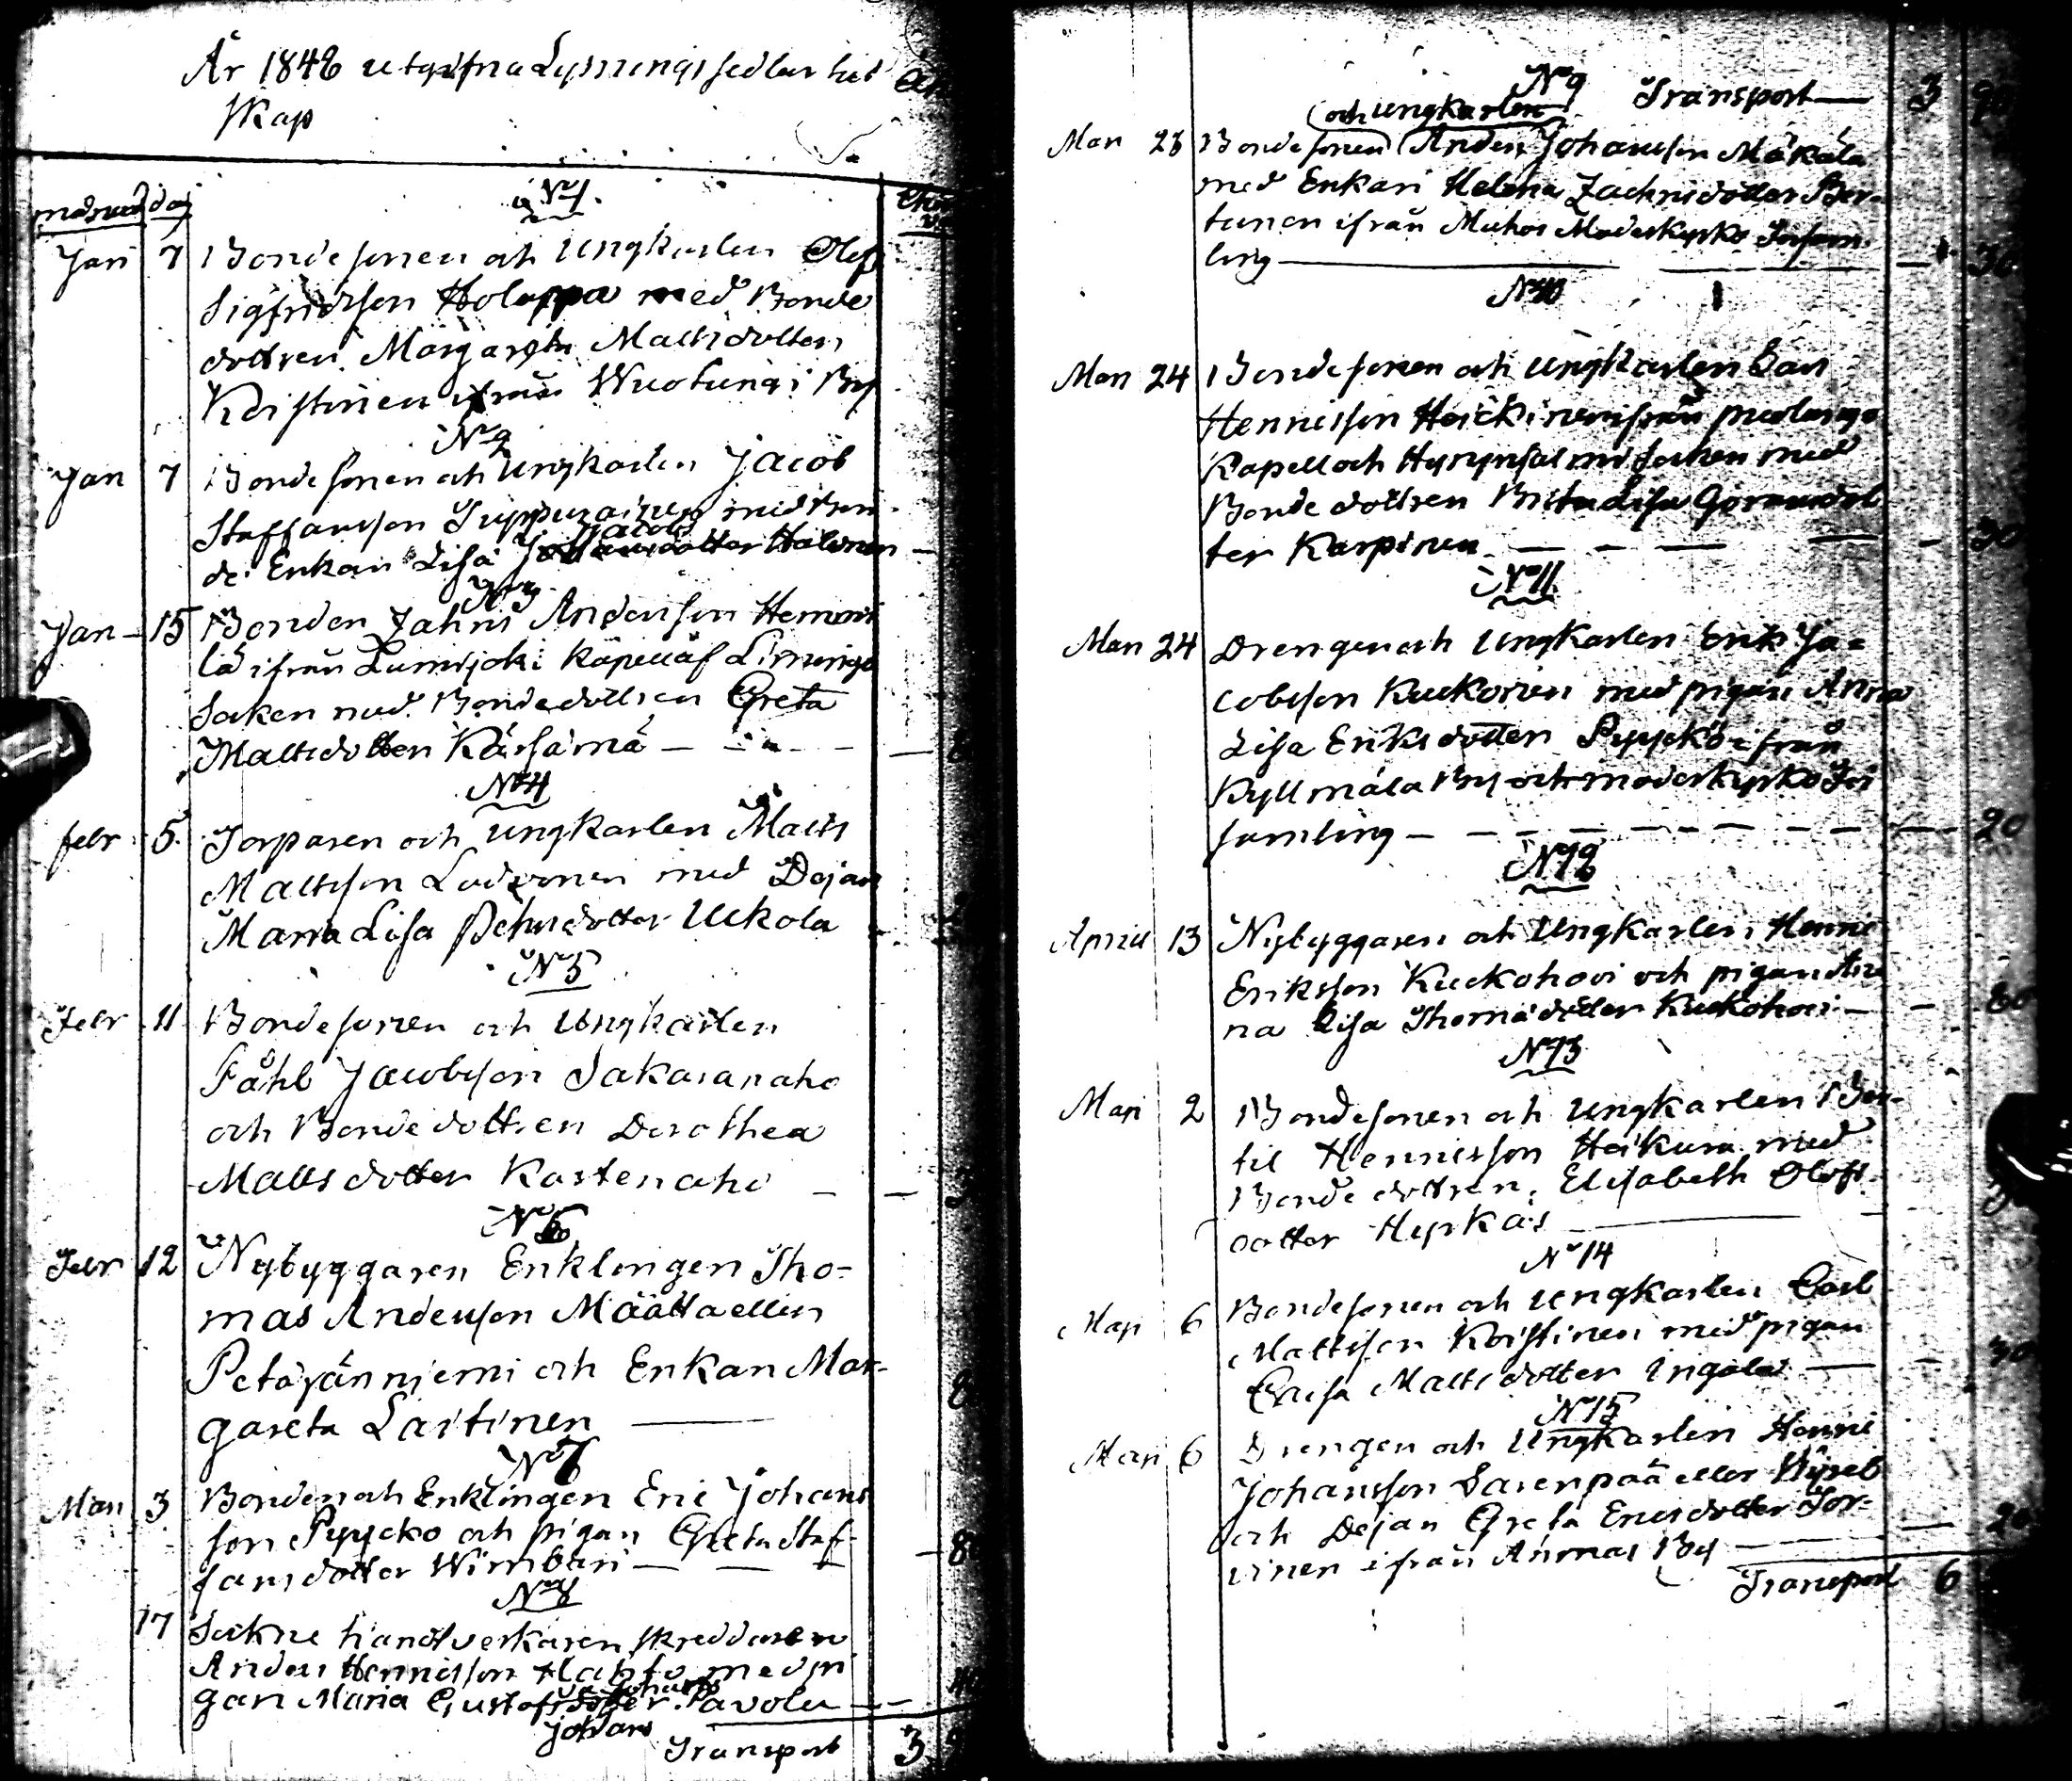 År 1848 utgifna Lysningssedlar till
skap
månad dag
No 1
Jan 7 Bondesonen och Ungkarlen Olof
Sigfridsson Holappa med Bonde
dottren Margareta Mattsdotter
Koistinen ifrån Wuotungi By
No 2
Jan 7 Bondesonen och Ungkarlen Jacob
Staffansson med Bon
de Enkan Lisa Jacobs dotter Halonen
No 3
Jan 15 Bonden Zahris Andersson Hemmi
lä ifrån Lumijoki Kapell af Limingo
Socken med Bondedottren Greta
Mattsdotter Kärsämä
No 4
febr 5 Torparen och Ungkarlen Matts
Mattsson med Dejan
Maria Lisa Pehrsdotter Uckola
No 5
Febr 11 Bondesonen och Ungkarlen
Påhl Jacobsson Sakaranaho
och Bondedottren Dorothea
Matts dotter Kortenaho
No 6
Febr 12 Nybyggaren Enklingen Tho-
mas Andersson Määtta eller
Petäjänniemi och Enkan Mar-
gareta Laitinen
No 7
Mars 3 Bonden och Enklingen Eric Johans
son Pyycko och pigan Greta Staf
fansdotter Wimbari
No 8
17 Sockne handtverkaren skreddaren
Anders Hennisson Hahto med pi
gan Maria Gustafsdotter Pavola
Johans
Transport 3
No 9 Transport 3 90
och ungkarlen
Mars 23 Bondesonen Anders Johansson Mäkälä
med Enkan Helena Zachrisdotter Per-
tunen ifrån Muhos Moderkyrko Försam
ling 30
No 10
Mars 24 Bondesonen och Ungkarlen Carl
Hennisson Heickinen ifrån Puolango
Kapell och Hyrynsalmi Socken med
Bonde dottren Brita Lisa Göransdot
ter Karpinen 30
No 11
Mars 24 Drengen och Ungkarlen Erik Ja=
cobsson Kuckonen med pigan Anna
Lisa Eriksdotter Pyyckö ifrån
Kyllmälä By och moderkyrko För
samling 20
No 12
April 13 Nybyggaren och Ungkarlen Henric
Eriksson Kuckohovi och pigan An
na Lisa Thomædotter Kuckohovi 80
No 13
Maji 2 Bondesonen och Ungkarlen Ber-
til Hennisson Heikura med
Bonde dottren Elisabeth Olofs
dotter Hyrkäs
No 14
Maji 6 Bondesonen och Ungkarlen Carl
Mattsson Koistinen med pigan
Caisa Mattsdotter Ingala 30
No 15
Maji 6 Drengen och Ungkarlen Henric
Johansson Sarenpää eller
och Dejan Greta Ericsdotter Tor-
vinen ifrån Ahmas By 20
Transport 6